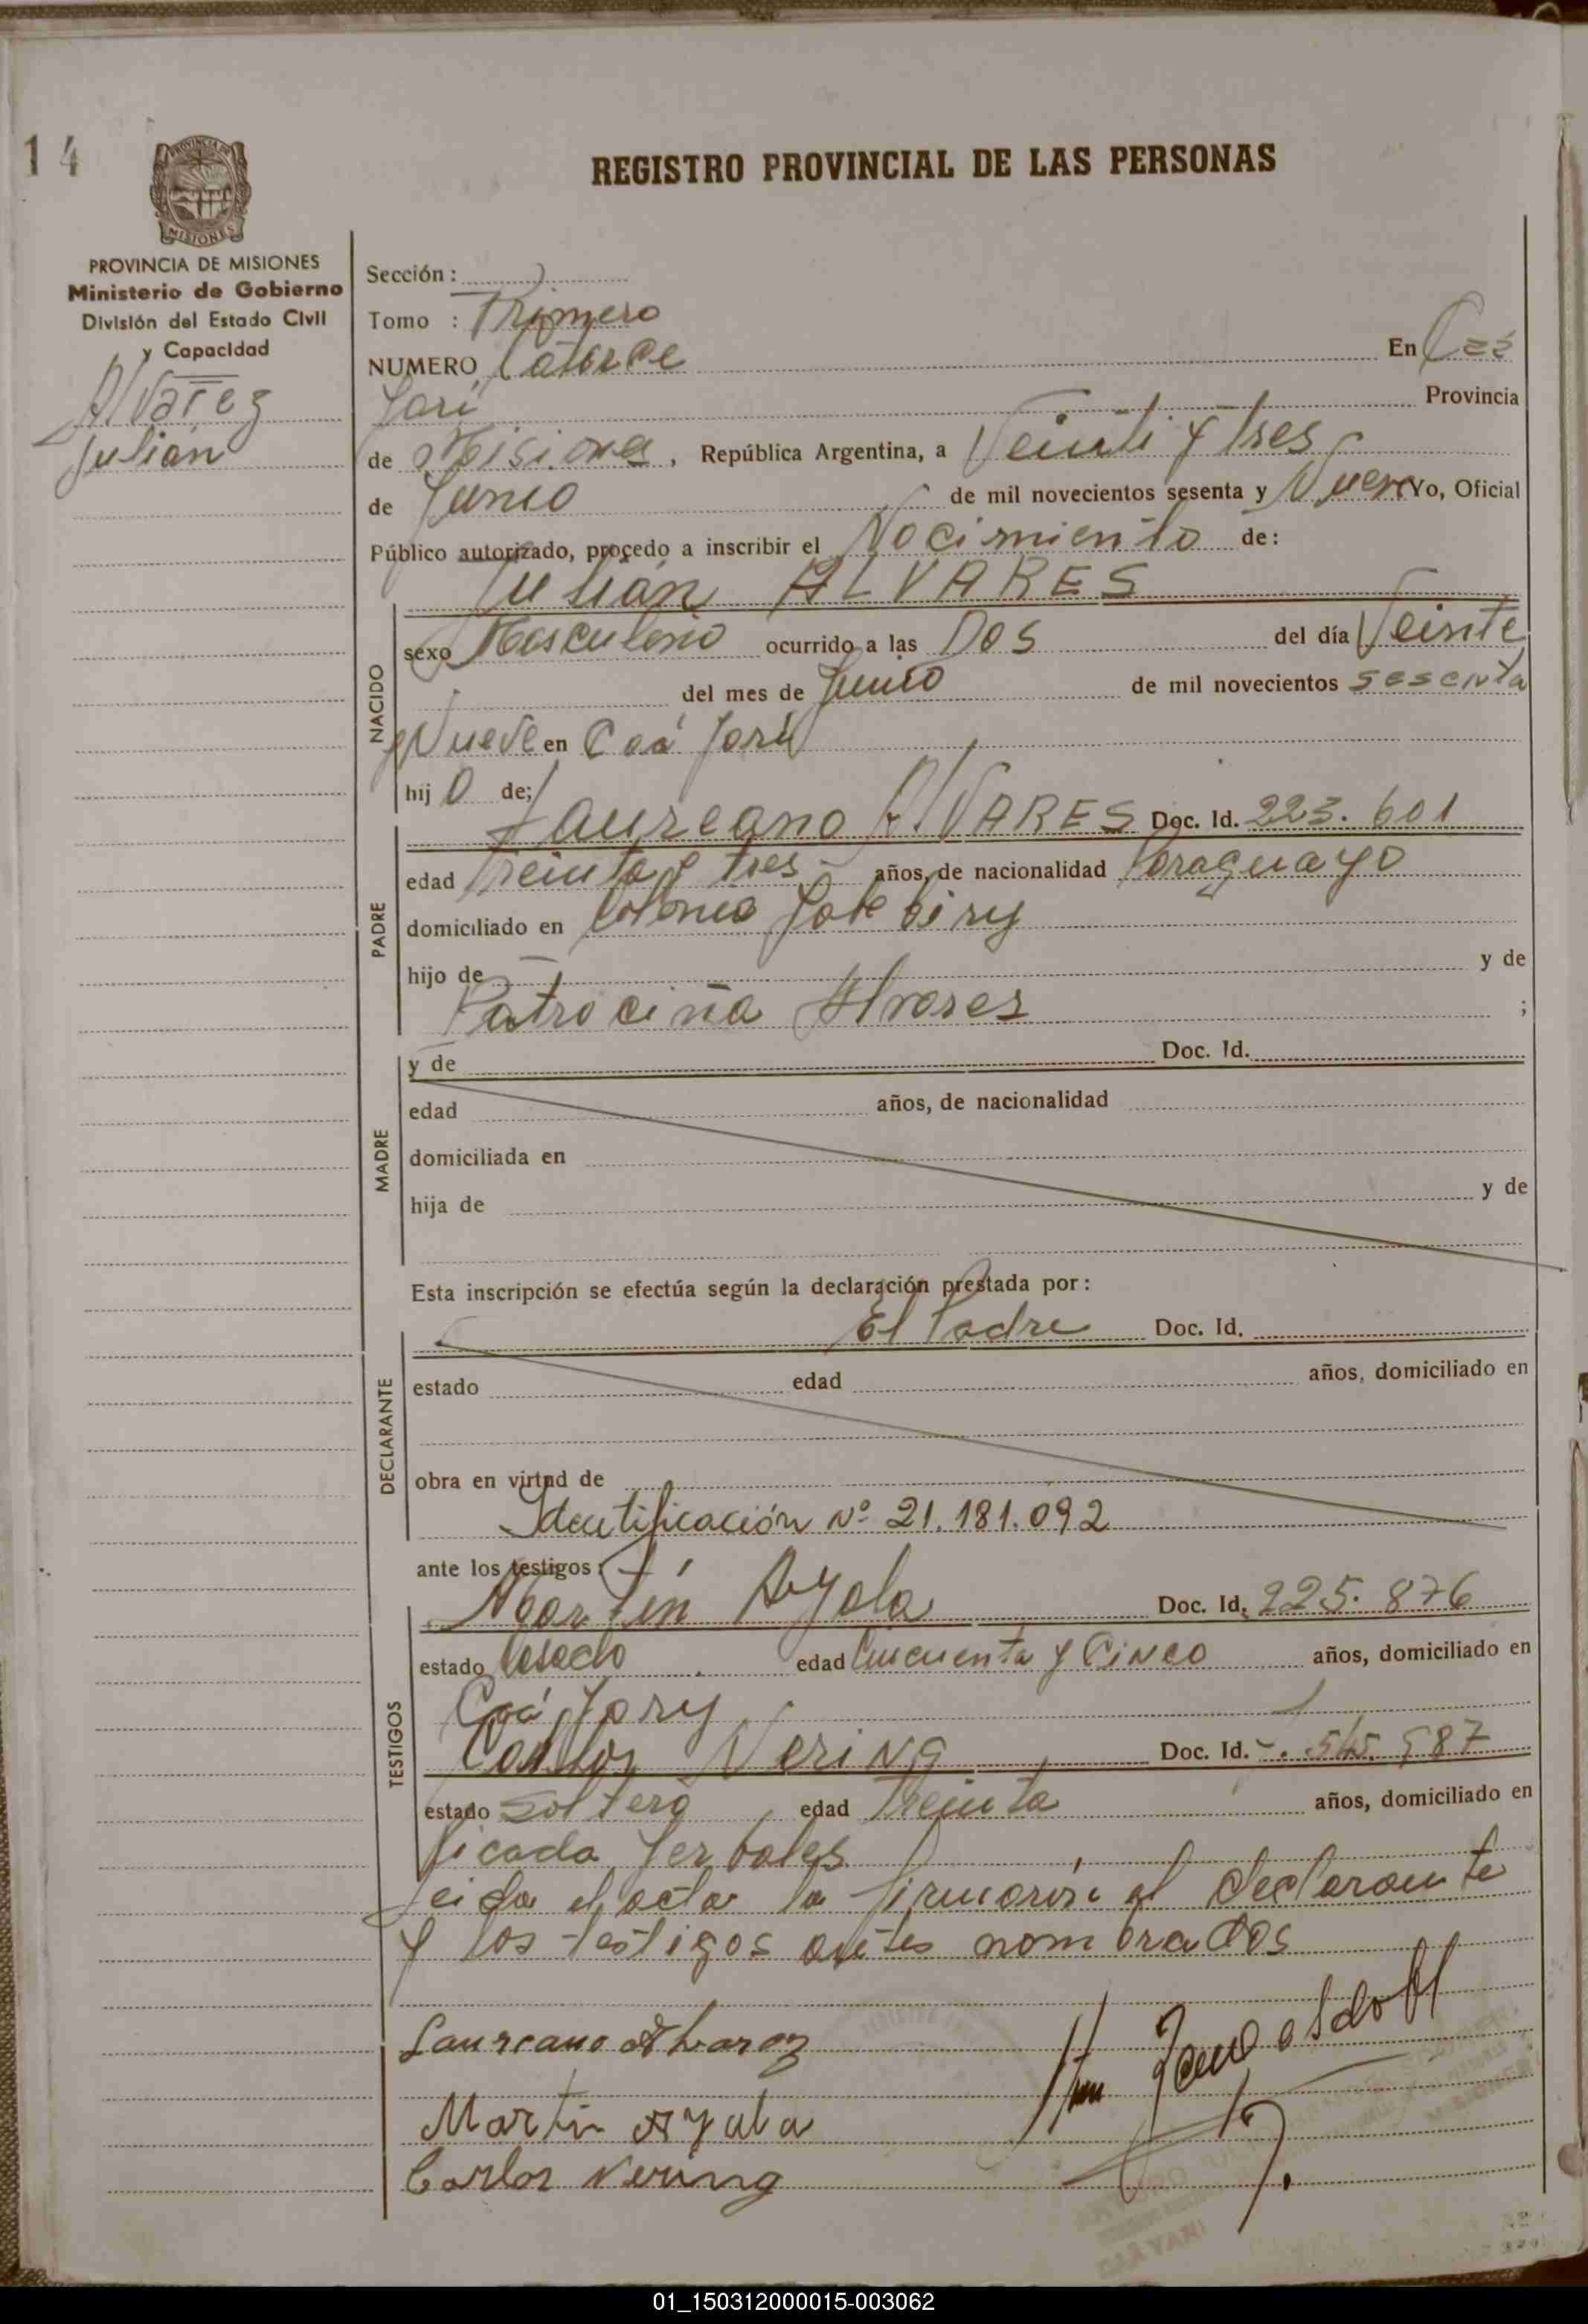 14
PROVINCIA DE
MISIONES
REGISTRO PROVINCIAL DE LAS PERSONAS
PROVINCIA DE MISIONES
Ministerio de Gobierno
División del Estado Civil
y Capacidad
Alvarez
Julian
Sección :
Tomo : Primero
NUMERO Catorce En Caá
Yarí Provincia
de Misiones, República Argentina, a Veinti y tres
de Junio de mil novecientos sesenta y Nueve Yo, Oficial
Público autorizado, procedo a inscribir el Nacimiento de:
Julián ALVARES
NACIDO
sexo Masculino ocurrido a las Dos del día Veinte
del mes de Junio de mil novecientos sesenta
y Nueve en Caá Yarí
hijo de;
PADRE
Laureano ALVARES Doc. Id. 223.601
edad Treinta y tres años, de nacionalidad Paraguayo
domiciliado en Colonia
hijo de y de
Patrocinia Alvares ;
MADRE
y de Doc. Id.
edad años, de nacionalidad
domiciliada en
hija de y de
Esta inscripción se efectúa según la declaración prestada por:
DECLARANTE
El Padre Doc. Id.
estado edad años, domiciliado en
obra en virtud de
Identificación Nº 21.181.092
ante los testigos:
TESTIGOS
Martín Ayala Doc. Id. 225.876
estado Casado edad Cincuenta y Cinco años, domiciliado en
Caá Yary
Carlos Nering Doc. Id. 545.987
estado Soltero edad Treinta años, domiciliado en
Picada Yerbales
Leida el acta la firmaron el declarante
y los testigos antes nombrados
Laureano Alvarez
Martin Ayala
Carlos Nering
CAÁ YARI
01_150312000015-003062